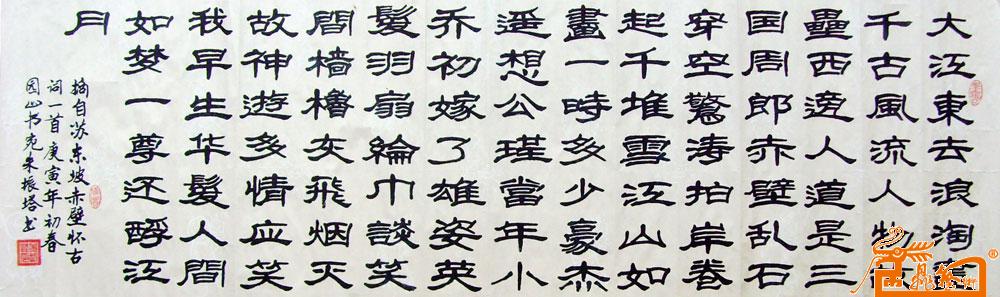 大江東去浪淘盡
千古風流人物
壘西邊人道是三
国周郎赤壁乱石
穿空驚涛拍岸卷
起千堆雪江山如
畫一時多少豪杰
遥想公瑾當年小
乔初嫁了雄姿英
髮羽扇綸巾談笑
間檣櫓灰飛烟灭
故神遊多情应笑
我早生华髮人間
如梦一尊还酹江
月
摘自苏东坡赤壁怀古
词一首庚寅年初春
园山书苑朱振塔书